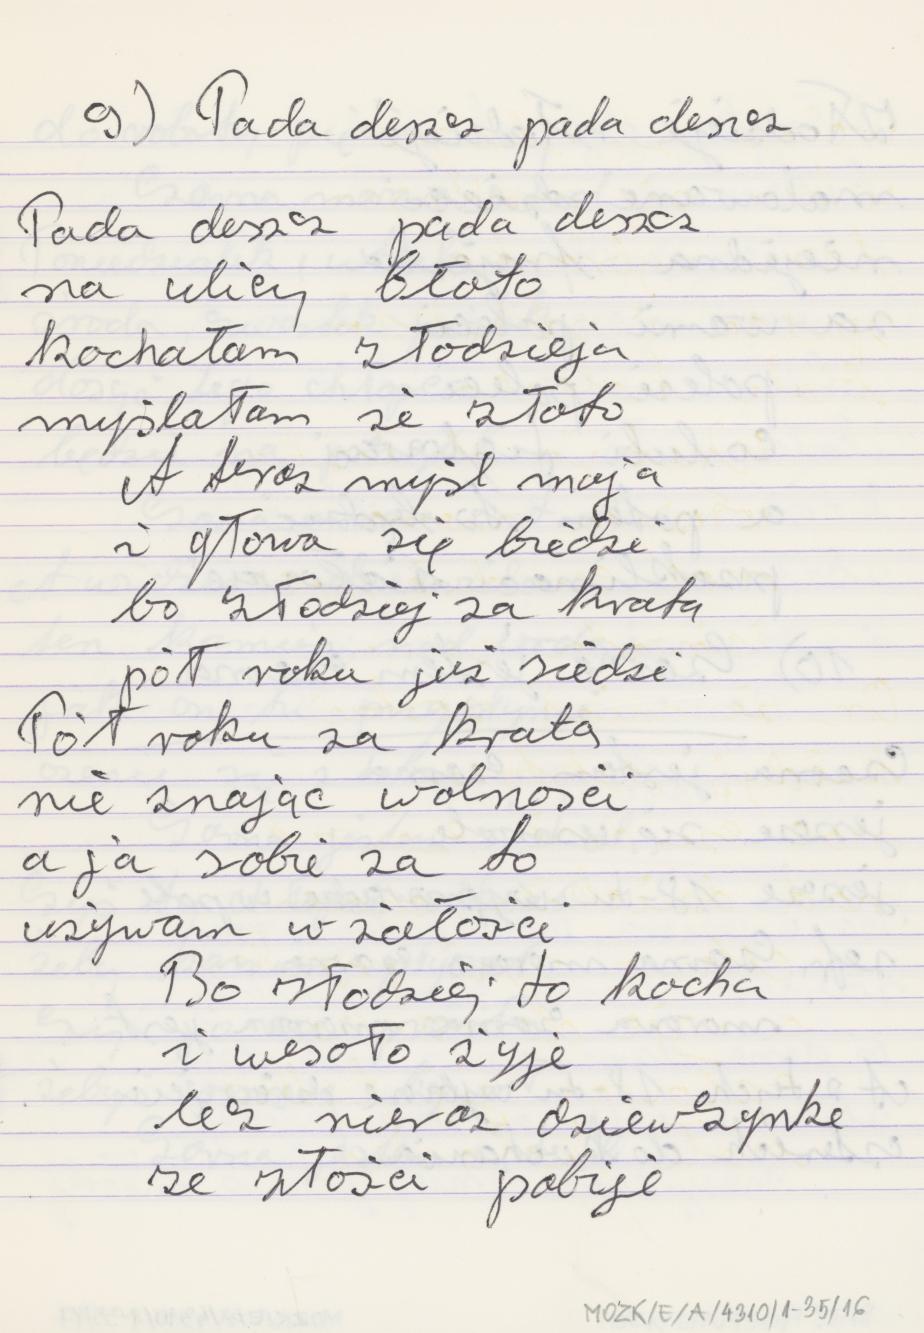 9) Pada deszcz pada deszcz
Pada deszcz pada deszcz
na ulicy błoto
kochałam złodzieja
myślałam że złoto
A teraz myśl moja
i głowa się biedzi
bo złodziej za kratą
pół roku już siedzi
Pół roku za kratą
nie znając wolności
a ja sobie za to
używam w żałości
Bo złodziej to kocha
i wesoło żyje
lecz nieraz dziewczynkę
ze złości pobije
MOZK/E/A/4310/1-35/16